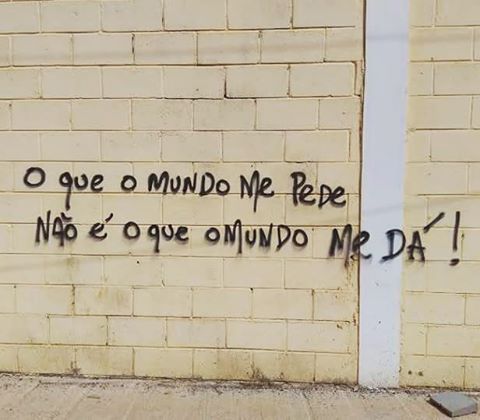 O que o MUNDO Me PeDe
NÃO é o que o MUNDO Me DÁ!